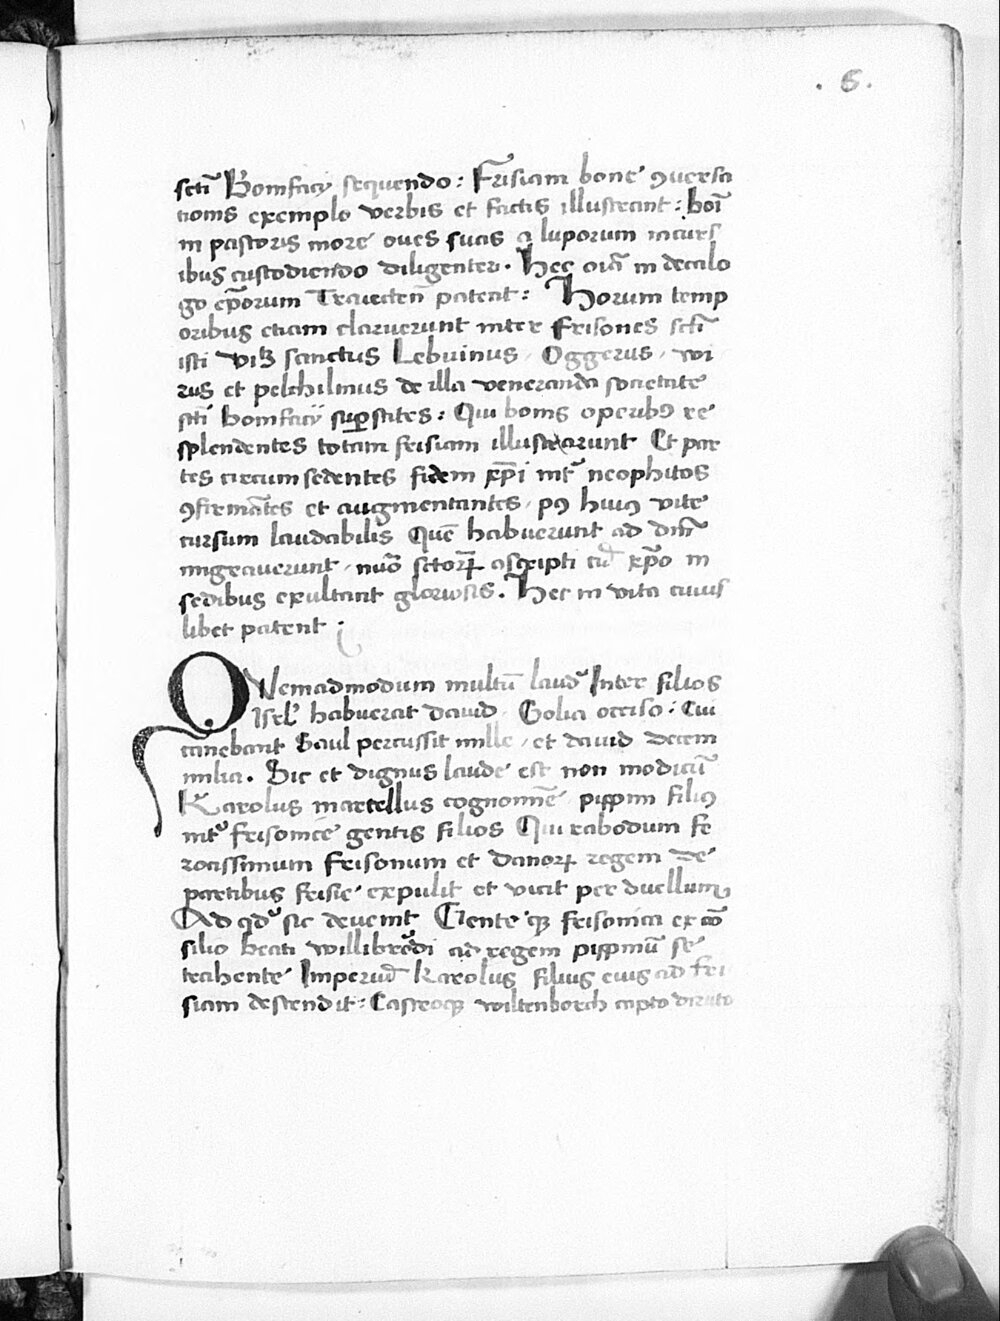 . 6 .
scti Bonifacij sequendo : Frisiam bone ꝯuersa
tionis exemplo verbis et factis illustrant : boī
in pastoris more oues suas a luporum incurs
ibus custodiendo diligenter . Hec oīa in decalo
go ep̄orum Traiecten̄ patent : Horum temp
oribus etiam claruerunt inter Frisones scti
isti viꝝ sanctus Lebuinus Oggerus wi
rus et pelchilmus de illa veneranda societate
scti bonifacij suꝑstites : Qui bonis operibꝯ re
splendentes totam frisiam illustrarunt Et par
tes circumsedentes fidem xp̄i int͛ neophitos
ꝯfirmātes et augmentantes pꝯ huiꝯ vite
cursum laudabilis Quē habuerunt ad dīn̄
migrauerunt nūo sctorꝝ ascripti cū xp̄o in
sedibus exultant gloriosis . Hec in vita cuius
libet patent ;
Quemadmodum multū laudꝰ Inter filios
Isrl̄ habuerat dauid Golia occiso : Cui
canebant Saul percussit mille et dauid decem
milia . Sic et dignus laude est non modicū
Karolus martellus cognomīe pippini filiꝯ
int͛ frisonice gentis filios Qui rabodum fe
rocissimum frisonum et danorꝝ regem de
partibus frisie expulit et vicit per duellum
Ad qd̛ sic deuenit Gente qꝫ frisonica ex cō
silio beati willibrordi ad regem pippinū se
trahente Imperiū Karolus filius eius ad fri
siam descendit : Castroqꝫ wiltenborch capto diruto